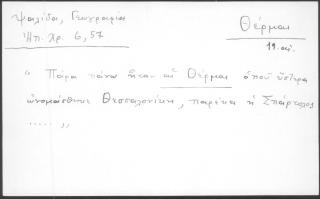 Ψαλίδα, Γεωγραφία
Ἠπ. Χρ. 6, 57
Θέρμαι
19. αἰ.
" Πάρα πάνω ἦταν αἱ Θέρμαι ὁποῦ ὕστερα
ὠνομάσθηκε Θεσσαλονίκη, παρέκει ἡ Σπάρτωλος
..... "